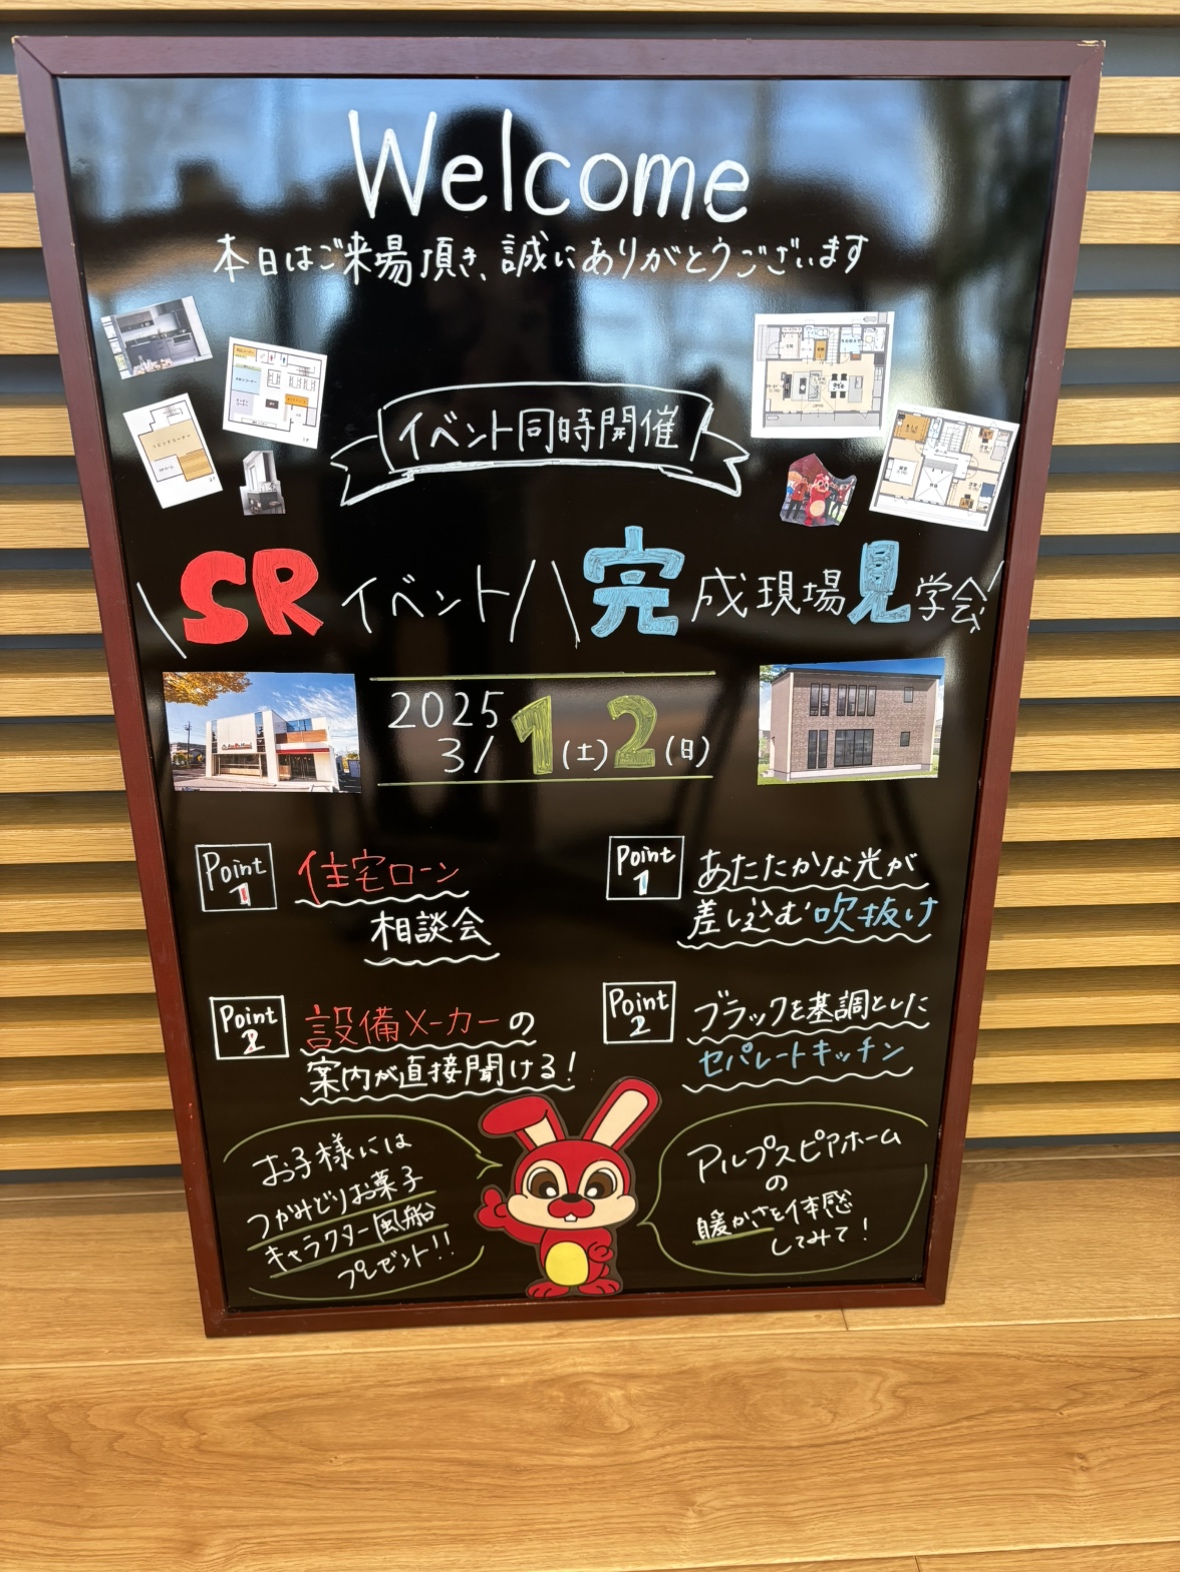 Welcome
本日はご来場頂き、誠にありがとうございます
イベント同時開催
\SRイベント/
\完成現場見学会/
2025
3/1(土)2(日)
Point
1
住宅ローン
相談会
Point
2
設備メーカーの
案内が直接聞ける!
Point
1
あたたかな光が
差し込む吹抜け
Point
2
ブラックを基調とした
セパレートキッチン
お子様には
つかみどりお菓子
キャラクター風船
プレゼント!!
アルプスピアホーム
の
暖かさを体感
してみて!